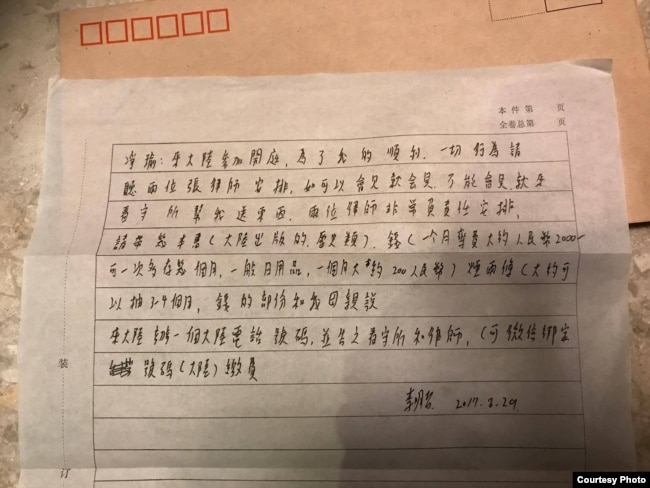 本件第　頁
全卷总第　頁
淨瑜：來大陸參加開庭，為了我的順利，一切行為請
聽兩位張律師安排，如可以會見就會見，不能會見就來
看守所幫我送東西，兩位律師非常負責任安排，
請帶幾本書（大陸出版的，歷史類），錢（一个月費員大約人民幣2000-
可一次多存幾個月，一般日用品，一個月大約200人民幣）煙兩條（大約可
以抽3-4個月，錢的部份和我母親說
來大陸辦一個大陸電話號碼，並告之看守所和律師，（可微信綁定
號碼（大陸）繳員
2017.8.29.
装
订
Courtesy Photo